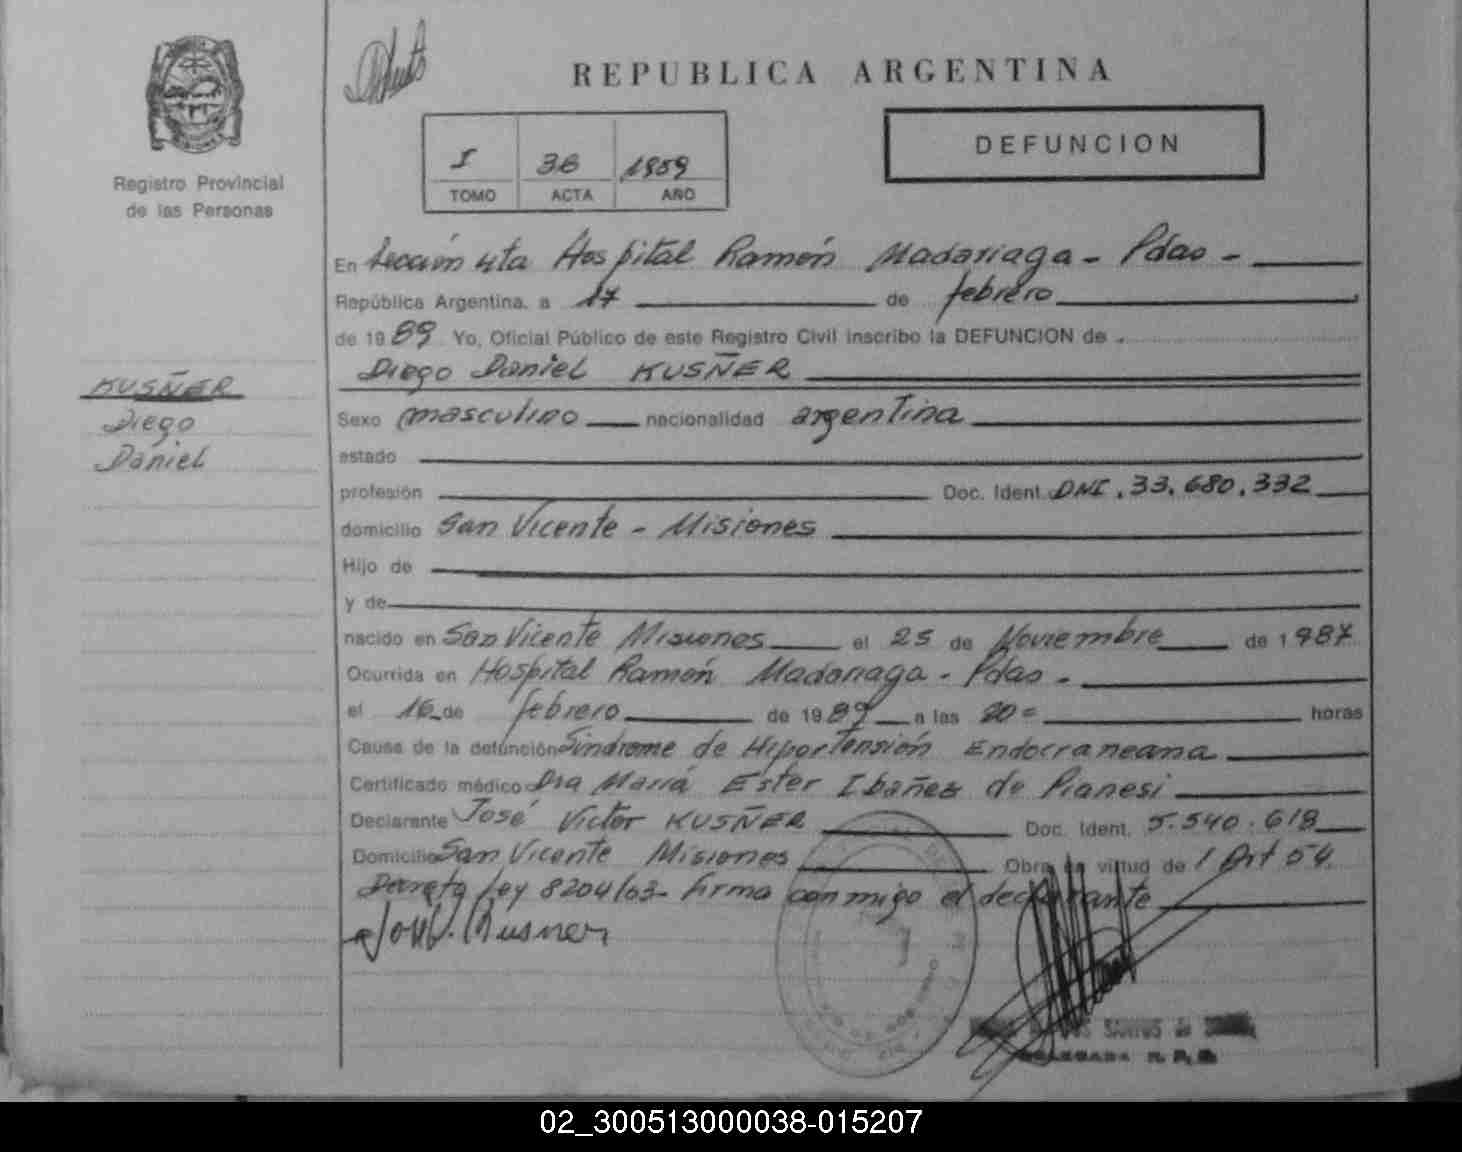 REPUBLICA ARGENTINA
Registro Provincial
de las Personas
I 36 1989
TOMO ACTA AÑO
DEFUNCION
KUSÑER
Diego
Daniel
En Sección 4ta Hospital Ramón Madariaga - Pdas -
República Argentina, a 17 de febrero
de 1989 Yo, Oficial Público de este Registro Civil inscribo la DEFUNCION de
Diego Daniel KUSÑER
Sexo masculino nacionalidad argentina
estado
profesión Doc. Ident. DNI. 33.680.332
domicilio San Vicente - Misiones
Hijo de
y de
nacido en San Vicente Misiones el 25 de Noviembre de 1987
Ocurrida en Hospital Ramón Madariaga - Pdas -
el 16 de febrero de 1989 a las 20= horas
Causa de la defunción Sindrome de Hipertensión Endocraneana
Certificado médico Dra María Ester Ibañez de Pianesi
Declarante José Victor KUSÑER Doc. Ident. 5.540.618
Domicilio San Vicente Misiones Obra en virtud de / Art 54
Decreto Ley 8204/63- firma conmigo el declarante
José V. Kusner
DELEGADA R. P. P.
02_300513000038-015207